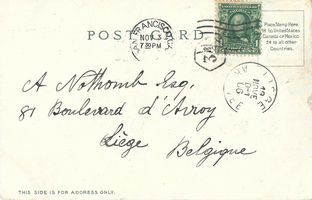 POSTCARD.
SAN FRANCISCO, CAL.
NOV 3
7 30 PM
Place Stamp Here
1¢ to United States
Canada or Mexico
2¢ to all other
Countries.
A Nothomb Esq.
81 Boulevard d'Avroy
Liège
Belgique
LIEGE
THIS SIDE IS FOR ADDRESS ONLY.